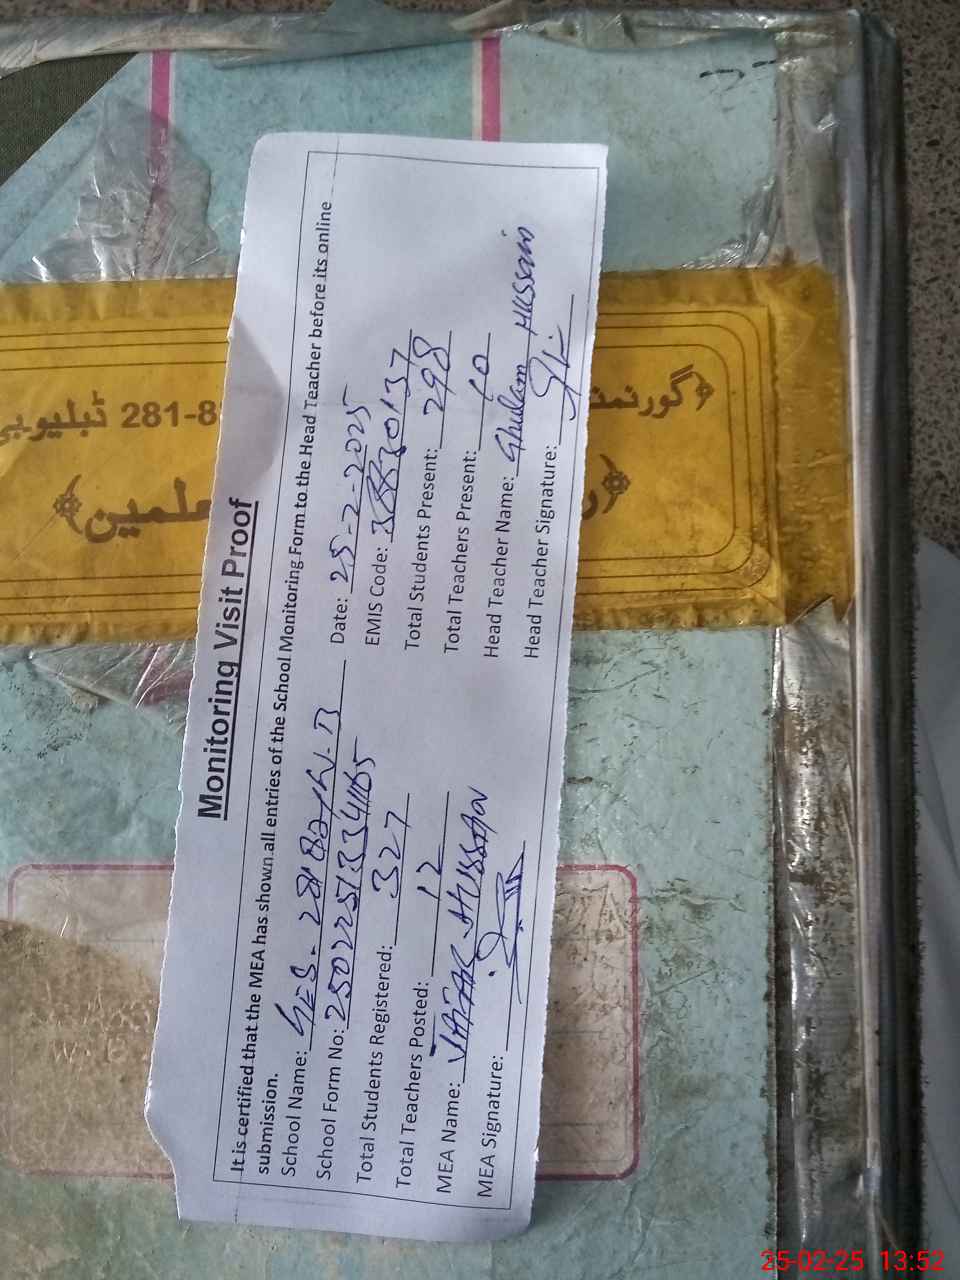 Monitoring Visit Proof
It is certified that the MEA has shown all entries of the School Monitoring Form to the Head Teacher before its online
submission.
School Name: GES. 281 W.B Date: 25-2-2025
School Form No: EMIS Code:
Total Students Registered: 327 Total Students Present: 298
Total Teachers Posted: 12 Total Teachers Present: 10
MEA Name: JAFAR HUSSAIN Head Teacher Name: Ghulam Hussain
MEA Signature: Head Teacher Signature:
﴿گورنمنٹ 281-8 ڈبلیو بی
علمین﴾
25-02-25 13:52